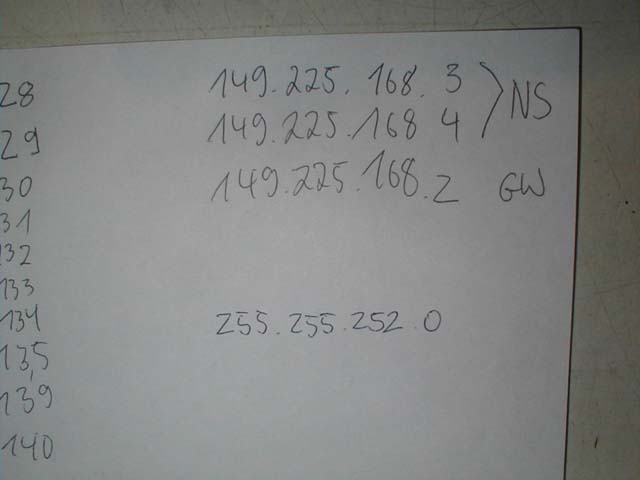 28 149.225.168.3
29 149.225.168 4 NS
30 149.225.168.2 GW
31
132
133
134 255.255.252.0
135
139
140